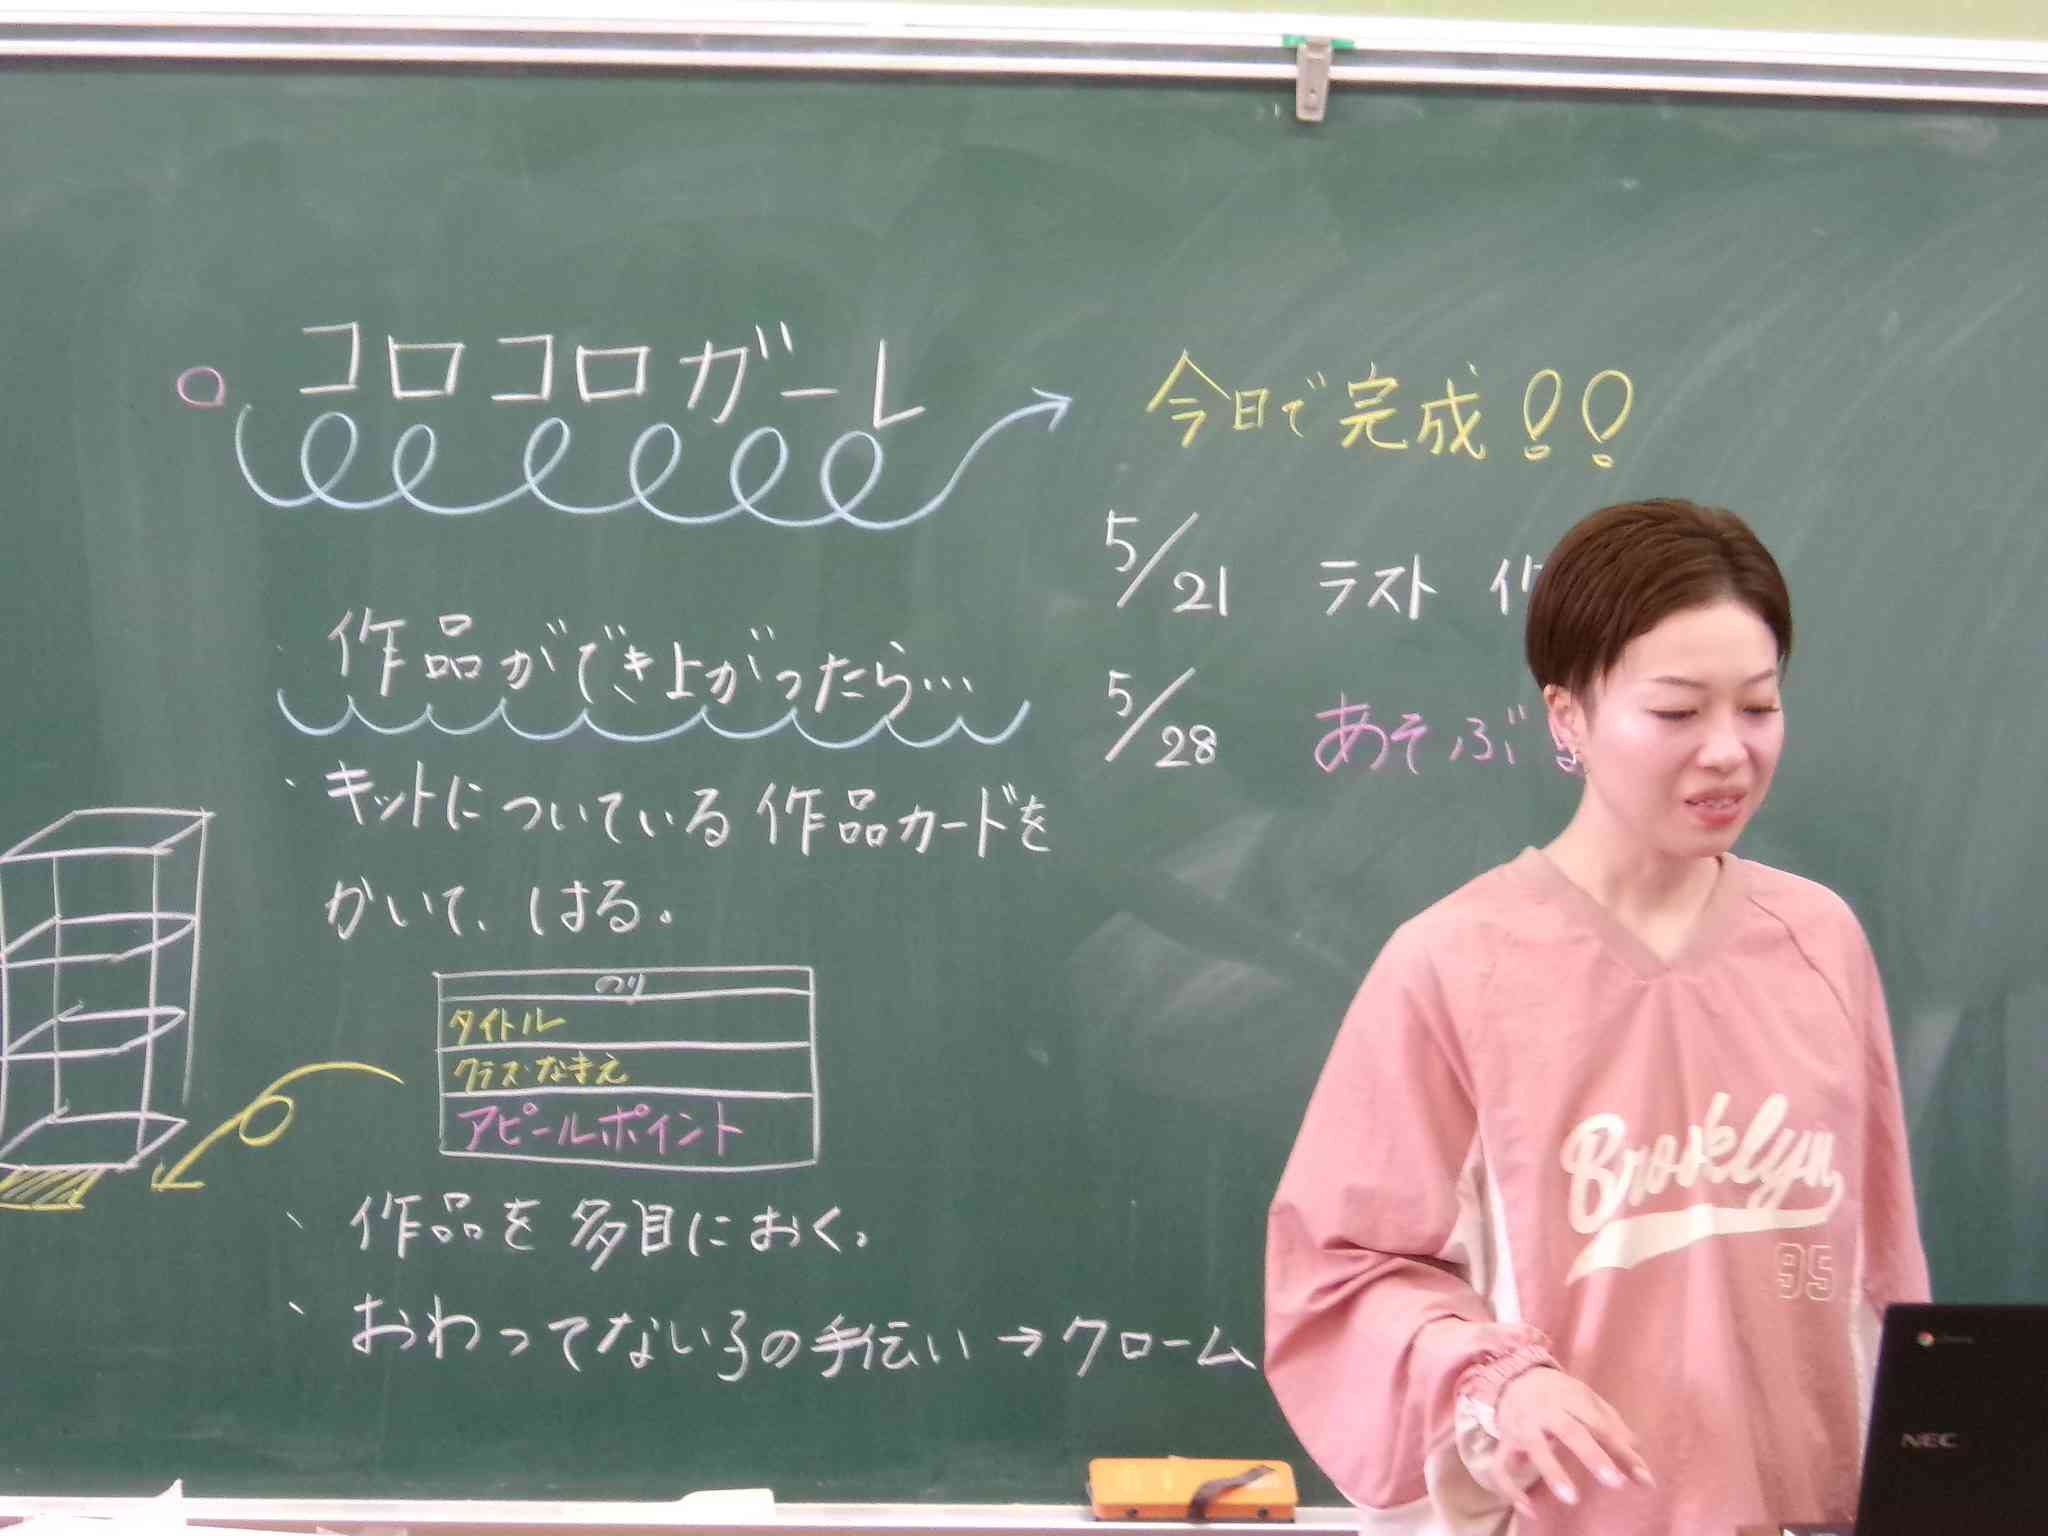 コロコロガーレ
今日で完成!!
5/21 ラスト 作
5/28 あそぶ
作品ができ上がったら…
・キットについている作品カードを
かいて、はる。
のり
タイトル
クラス・なまえ
アピールポイント
・作品を多目におく。
・おわってない子の手伝い→クローム
Brooklyn
95
NEC